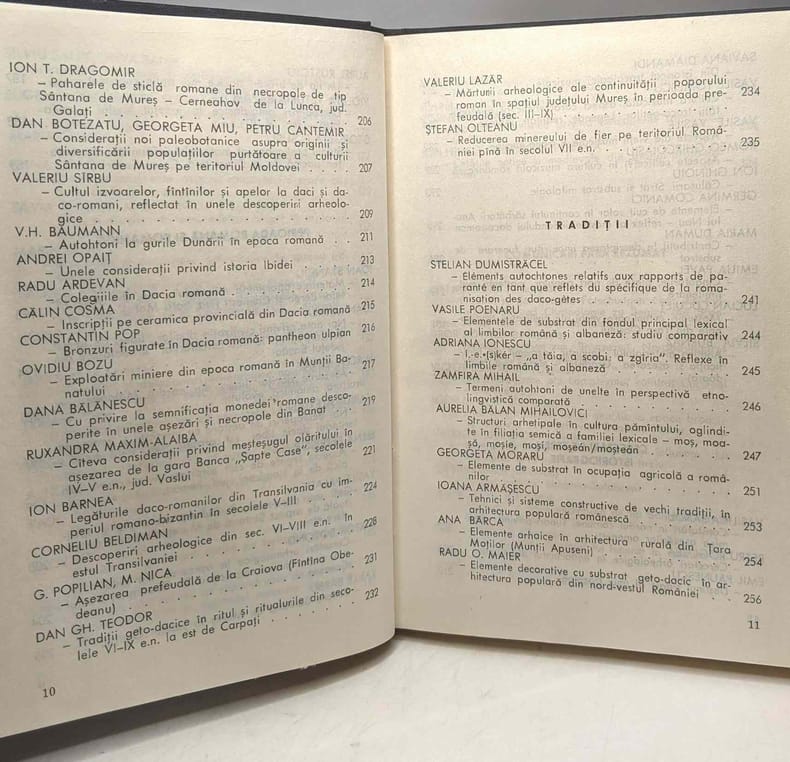 ION T. DRAGOMIR
– Paharele de sticlă romane din necropole de tip
Sântana de Mureș – Cerneahov de la Lunca, jud.
Galați . . . . . . . . . . 206
DAN BOTEZATU, GEORGETA MIU, PETRU CANTEMIR
– Considerații noi paleobotanice asupra originii și
diversificării populațiilor purtătoare a culturii
Sântana de Mureș pe teritoriul Moldovei . . . 207
VALERIU SÎRBU
– Cultul izvoarelor, fîntînilor și apelor la daci și da-
co-romani, reflectat în unele descoperiri arheolo-
gice . . . . . . . . . . 209
V.H. BAUMANN
– Autohtoni la gurile Dunării în epoca romană . . 211
ANDREI OPAIȚ
– Unele considerații privind istoria Ibidei . . . 213
RADU ARDEVAN
– Colegiile în Dacia romană . . . . . . 214
CĂLIN COSMA
– Inscripții pe ceramica provincială din Dacia romană 215
CONSTANTIN POP
– Bronzuri figurate în Dacia romană: pantheon ulpian 216
OVIDIU BOZU
– Exploatări miniere din epoca romană în Munții Ba-
natului . . . . . . . . . . 217
DANA BĂLĂNESCU
– Cu privire la semnificația monedei romane desco-
perite în unele așezări și necropole din Banat . . 219
RUXANDRA MAXIM-ALAIBA
– Cîteva considerații privind meșteșugul olăritului în
așezarea de la gara Banca „Șapte Case", secolele
IV–V e.n., jud. Vaslui . . . . . . 221
ION BARNEA
– Legăturile daco-romanilor din Transilvania cu im-
periul romano-bizantin în secolele V–III . . . 224
CORNELIU BELDIMAN
– Descoperiri arheologice din sec. VI–VIII e.n. în
estul Transilvaniei . . . . . . . 228
G. POPILIAN, M. NICA
– Așezarea prefeudală de la Craiova (Fîntîna Obe-
deanu) . . . . . . . . . . 231
DAN GH. TEODOR
– Tradiții geto-dacice în ritul și ritualurile din seco-
lele VI–IX e.n. la est de Carpați . . . . . 232
10
VALERIU LAZĂR
– Mărturii arheologice ale continuității poporului
roman în spațiul județului Mureș în perioada pre-
feudală (sec. III–IX) . . . . . . . 234
ȘTEFAN OLTEANU
– Reducerea minereului de fier pe teritoriul Româ-
niei pînă în secolul VII e.n. . . . . . 235
TRADIȚII
STELIAN DUMISTRĂCEL
– Eléments autochtones relatifs aux rapports de pa-
ranté en tant que reflets du spécifique de la roma-
nisation des daco-gètes . . . . . . 241
VASILE POENARU
– Elementele de substrat din fondul principal lexical
al limbilor română și albaneză: studiu comparativ 244
ADRIANA IONESCU
– I.-e.*(s)kér – „a tăia, a scobi: a zgîria". Reflexe în
limbile română și albaneză . . . . . 245
ZAMFIRA MIHAIL
– Termeni autohtoni de unelte în perspectivă etno-
lingvistică comparată . . . . . . 246
AURELIA BALAN MIHAILOVICI
– Structuri arhetipale în cultura pămîntului, oglindi-
te în filiația semică a familiei lexicale – moș, moa-
șă, moșie, moși, moșean/moștean . . . . 247
GEORGETA MORARU
– Elemente de substrat în ocupația agricolă a româ-
nilor . . . . . . . . . . 251
IOANA ARMĂȘESCU
– Tehnici și sisteme constructive de vechi tradiții, în
arhitectura populară românească . . . . 253
ANA BÂRCA
– Elemente arhaice în arhitectura rurală din Țara
Moților (Munții Apuseni) . . . . . . 254
RADU O. MAIER
– Elemente decorative cu substrat geto-dacic în ar-
hitectura populară din nord-vestul României . . 256
11